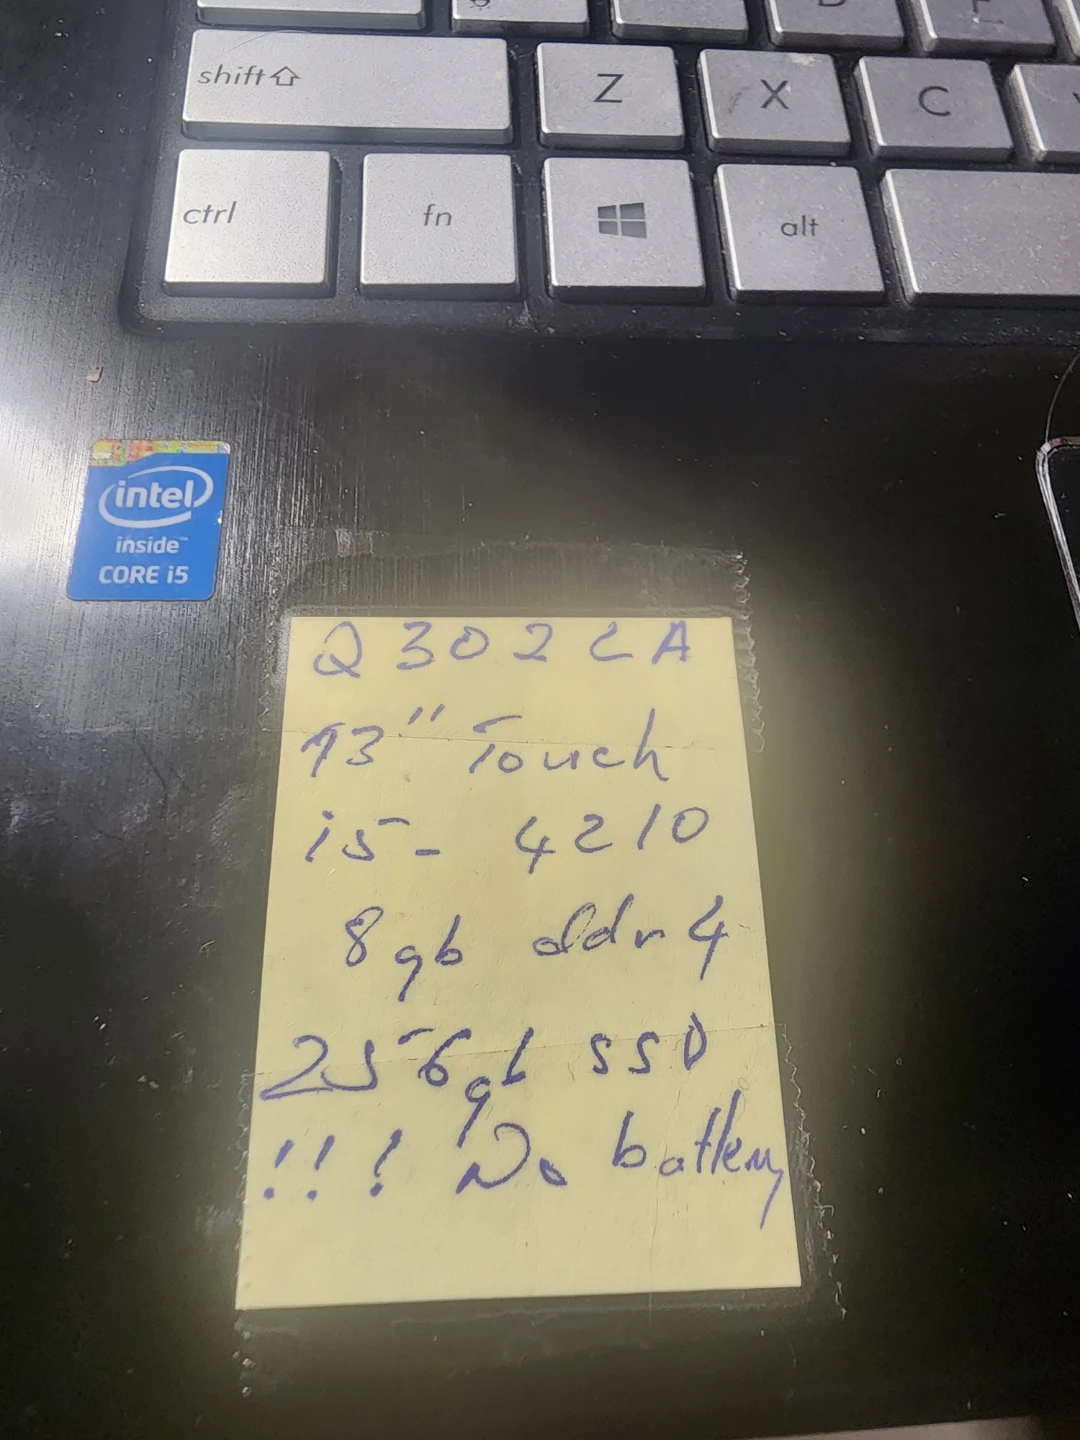 shift
Z
X
C
ctrl
fn
alt
intel
inside™
CORE i5
Q302LA
13" Touch
i5- 4210
8gb ddr4
256gb SSD
!!! No battery